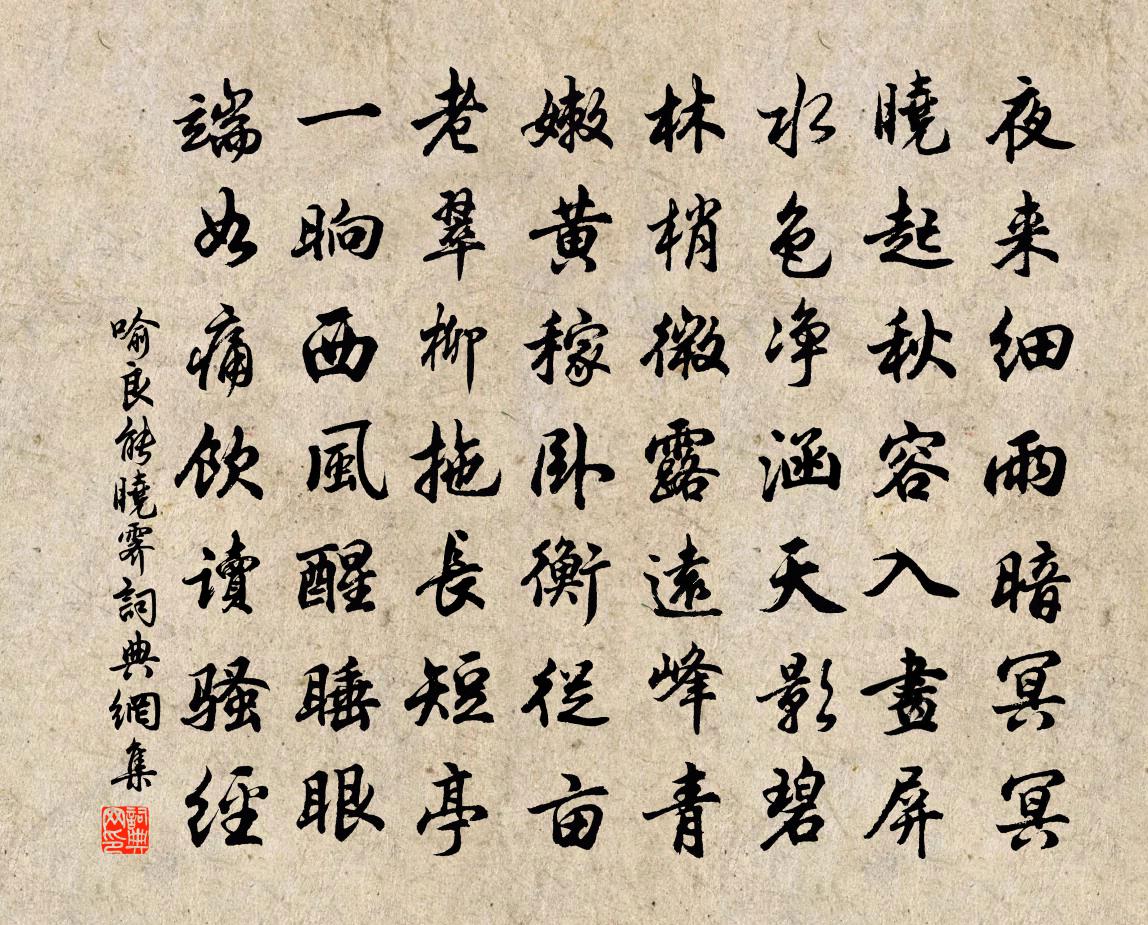 夜来细雨暗冥冥
曉起秋容入畫屏
水色净涵天影碧
林梢微露遠峰青
嫩黄稼卧衡從亩
老翠柳拖長短亭
一晌西風醒睡眼
端如痛飲讀騷經
喻良能曉霽詞典網集
詞典網印